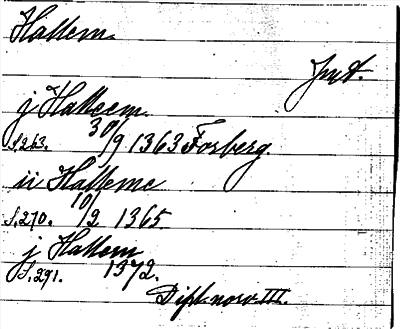 Hallem.
Jnd.
j Halleem.
S. 263. 30/9 1363 Forberg.
ii Halleme
S. 270. 10/2 1365.
j Hallem
S. 291. 1372.
Dipl. norv. III.